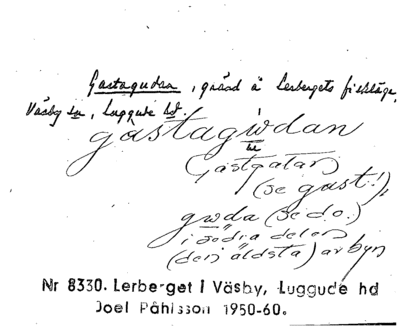 Gastagudan, gränd å Lerbergets fiskläge,
Väsby sn, Luggude hd.
gastagwdan
(Gastgatan)
(se gast!),
gwda (se do.)
i södra delen
(den äldsta) av byn
Nr 8330. Lerberget i Väsby, Luggude hd
Joel Påhlsson 1950-60.